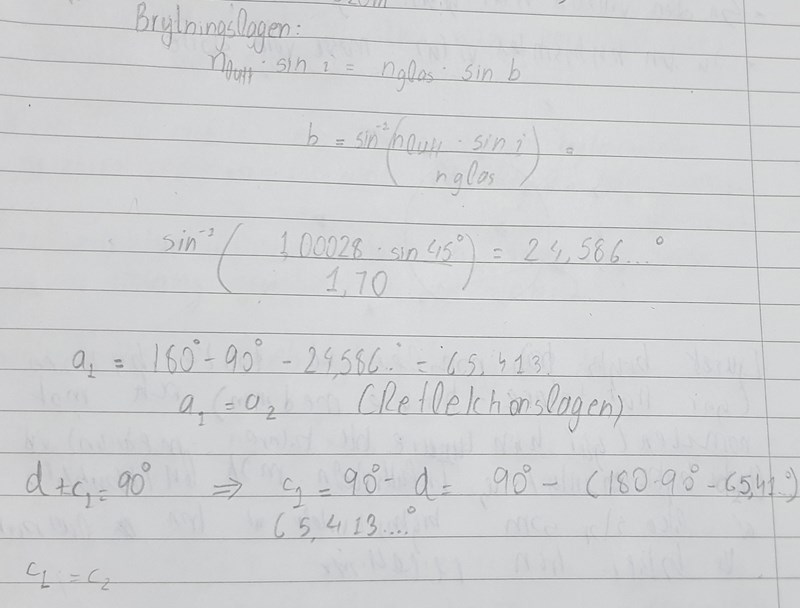 Brytningslagen:
nluft · sin i = nglas · sin b
b = sin⁻¹ (nluft · sin i / nglas) =
sin⁻¹ (1,00028 · sin 45° / 1,70) = 24,586...°
a₁ = 180° - 90° - 24,586..° = 65,413..
a₁ = a₂ (Reflektionslagen)
d + c₁ = 90° ⇒ c₁ = 90° - d = 90° - (180 - 90° - 65,41..°)
65,413...°
c₁ = c₂